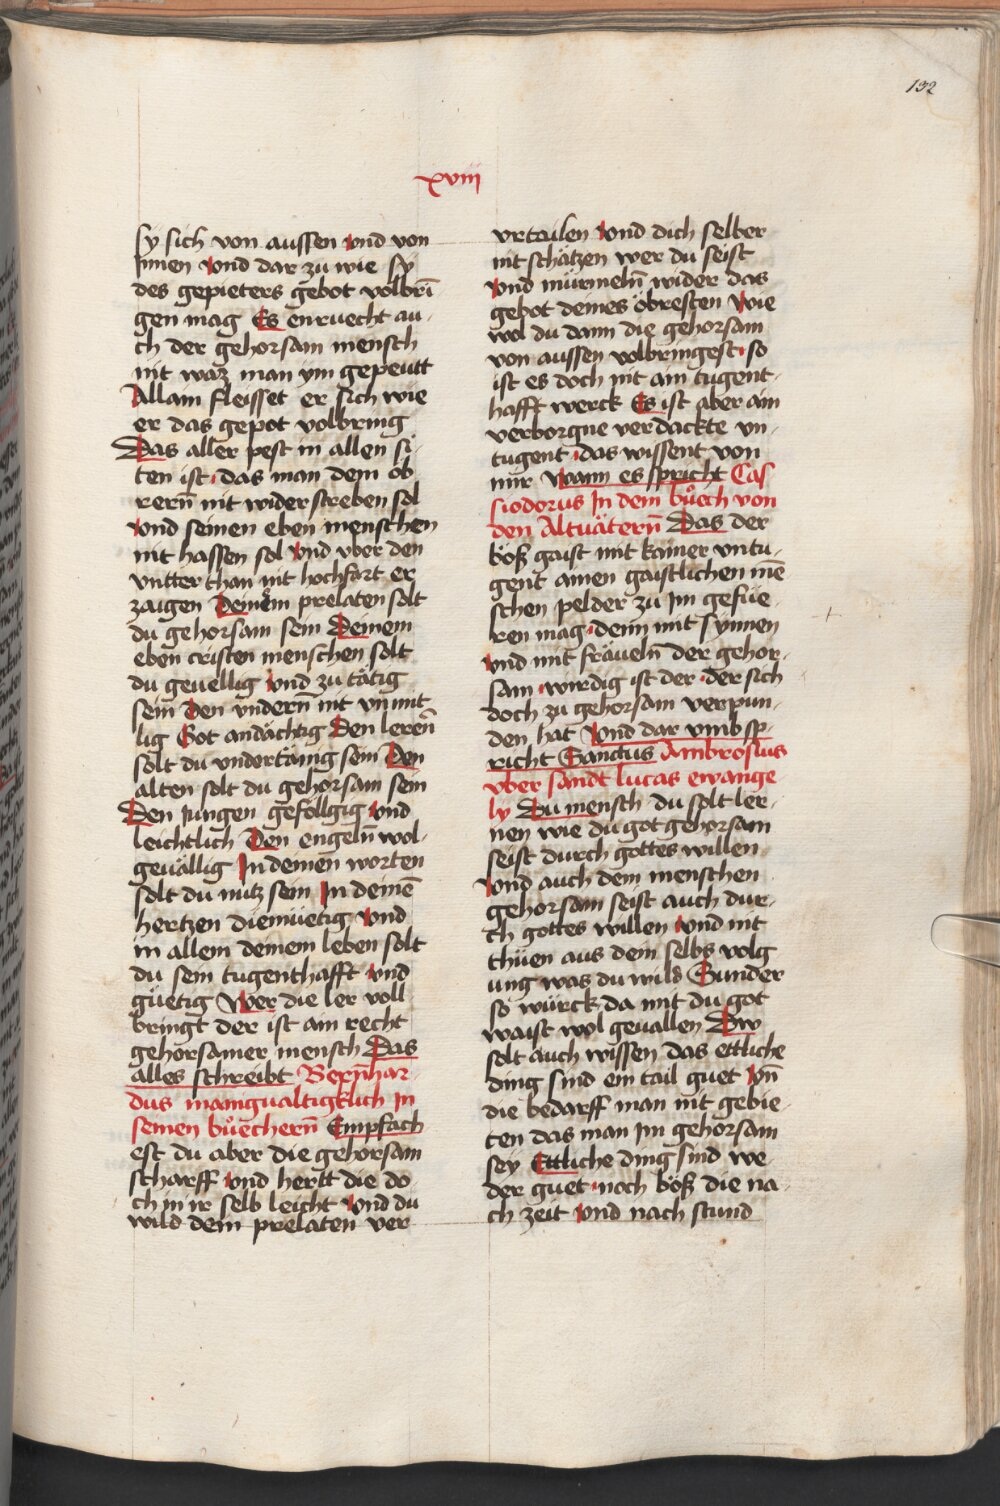 132
xviij
sy sich von aussen vnd von
Jnnen vnd dar zu wie sy
des gepieters gebot volbrī
gen mag Es enruecht au
ch der gehorsam mensch
nit waz man ym gepeutt
Allain fleisset er sich wie
er das gepot volbring
Das aller pest in allen si
ten ist das man dem ob
rerñ nit widerstreben sol
vnd seinen eben menschen
nit hassen sol vnd vber den
vntterthan nit hochfart er
zaigen Deinem prelaten solt
du gehorsam sein Deinem
eben cristen menschen solt
du geuellig vnd zu tätig
sein Den vnderñ nit vnmit
lig Got andächtig Den lererñ
solt du vndertänig sein Den
alten solt du gehorsam sein
Den Jungen gefollgig vnd
leichtlich Den engelñ wol
geuällig Jn deinen worten
solt du nutz sein Jn deinē
hertzen diemüetig vnd
in allem deinem leben solt
du sein tugenthafft vnd
güetig Wer die ler voll
bringt der ist ain recht
gehorsamer mensch Das
alles schreibt Berñhar
dus manigualtigklich Jn
seinen büecherñ Empfach
est du aber die gehorsam
scharff vnd hertt die do
ch in ir selb leicht vnd du
wild dem prelaten ver
vrtailen vnd dich selber
nit schätzen wer du seist
vnd mürmelñ wider das
gebot deines öbresten wie
wol du dann die gehorsam
von aussen volbringest so
ist es doch nit ain tugent
hafft werck Es ist aber ain
verborgne verdackte vn
tugent das wissent von
mir Wann es spricht Cas
siodorus Jn dem büech von
den Altuäterñ Das der
böß gaist mit kainer vntu
gent ainen gaistlichen mē
schen pelder zu Jm gefüe
ren mag denn mit synnen
vnd mit fräuelñ der gehor
sam wirdig ist der der sich
doch zu gehorsam verpun
den hat Vnd dar vmb sp
richt Sanctus Ambrosius
vber sandt lucas ewange
ly Du mensch du solt ler
nen wie du got gehorsam
seist durch gottes willen
vnd auch dem menschen
gehorsam seist auch dur
ch gottes willen vnd nit
thüen aus dem selbs volg
ung was du wild Sunder
so würck da mit du got
waist wol geuallen Dw
solt auch wissen das ettliche
ding sind ein tail guet vñ
die bedarff man nit gebie
ten das man Jm gehorsam
sey Ettliche ding sind we
der guet noch böß die na
ch zeit vnd nach stund